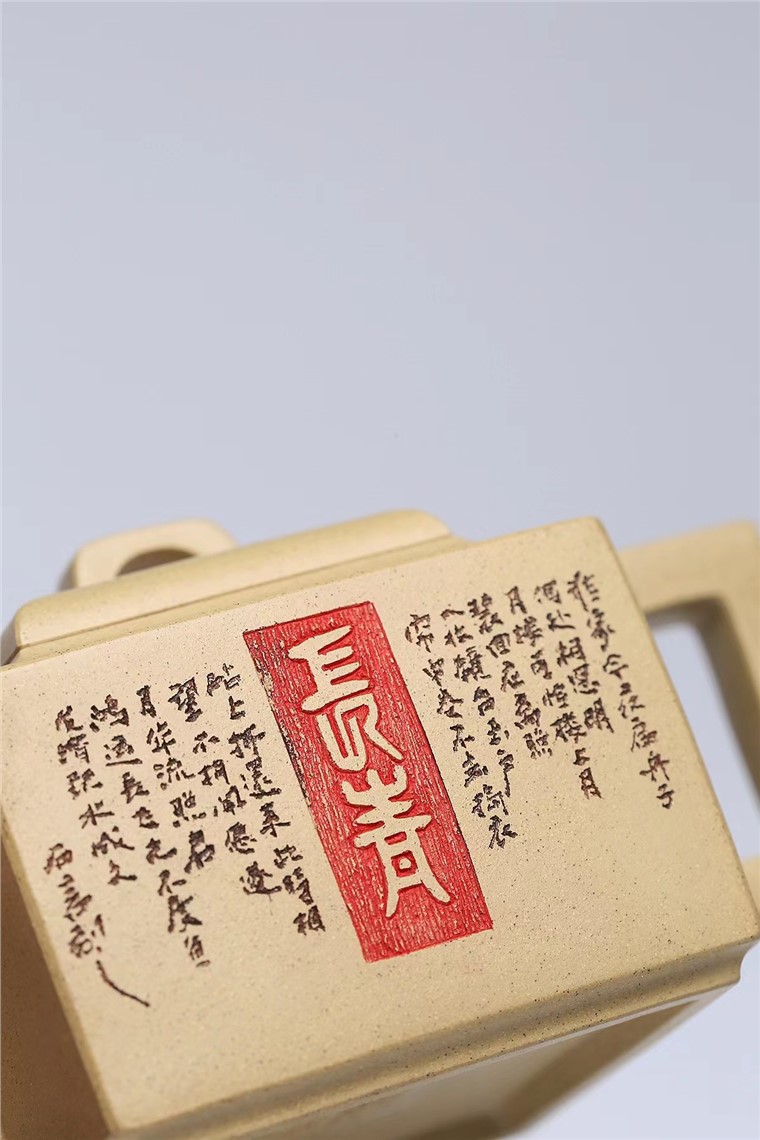 谁家今夜扁舟子
何处相思明
月楼可怜楼上月
裴回应离照
人妆镜台玉户
帘中卷不去捣衣
長青
砧上拂還来此時相
望不相闻愿逐
月华流照君
鸿雁长飞光不度鱼
龙潜跃水成文
石言刻